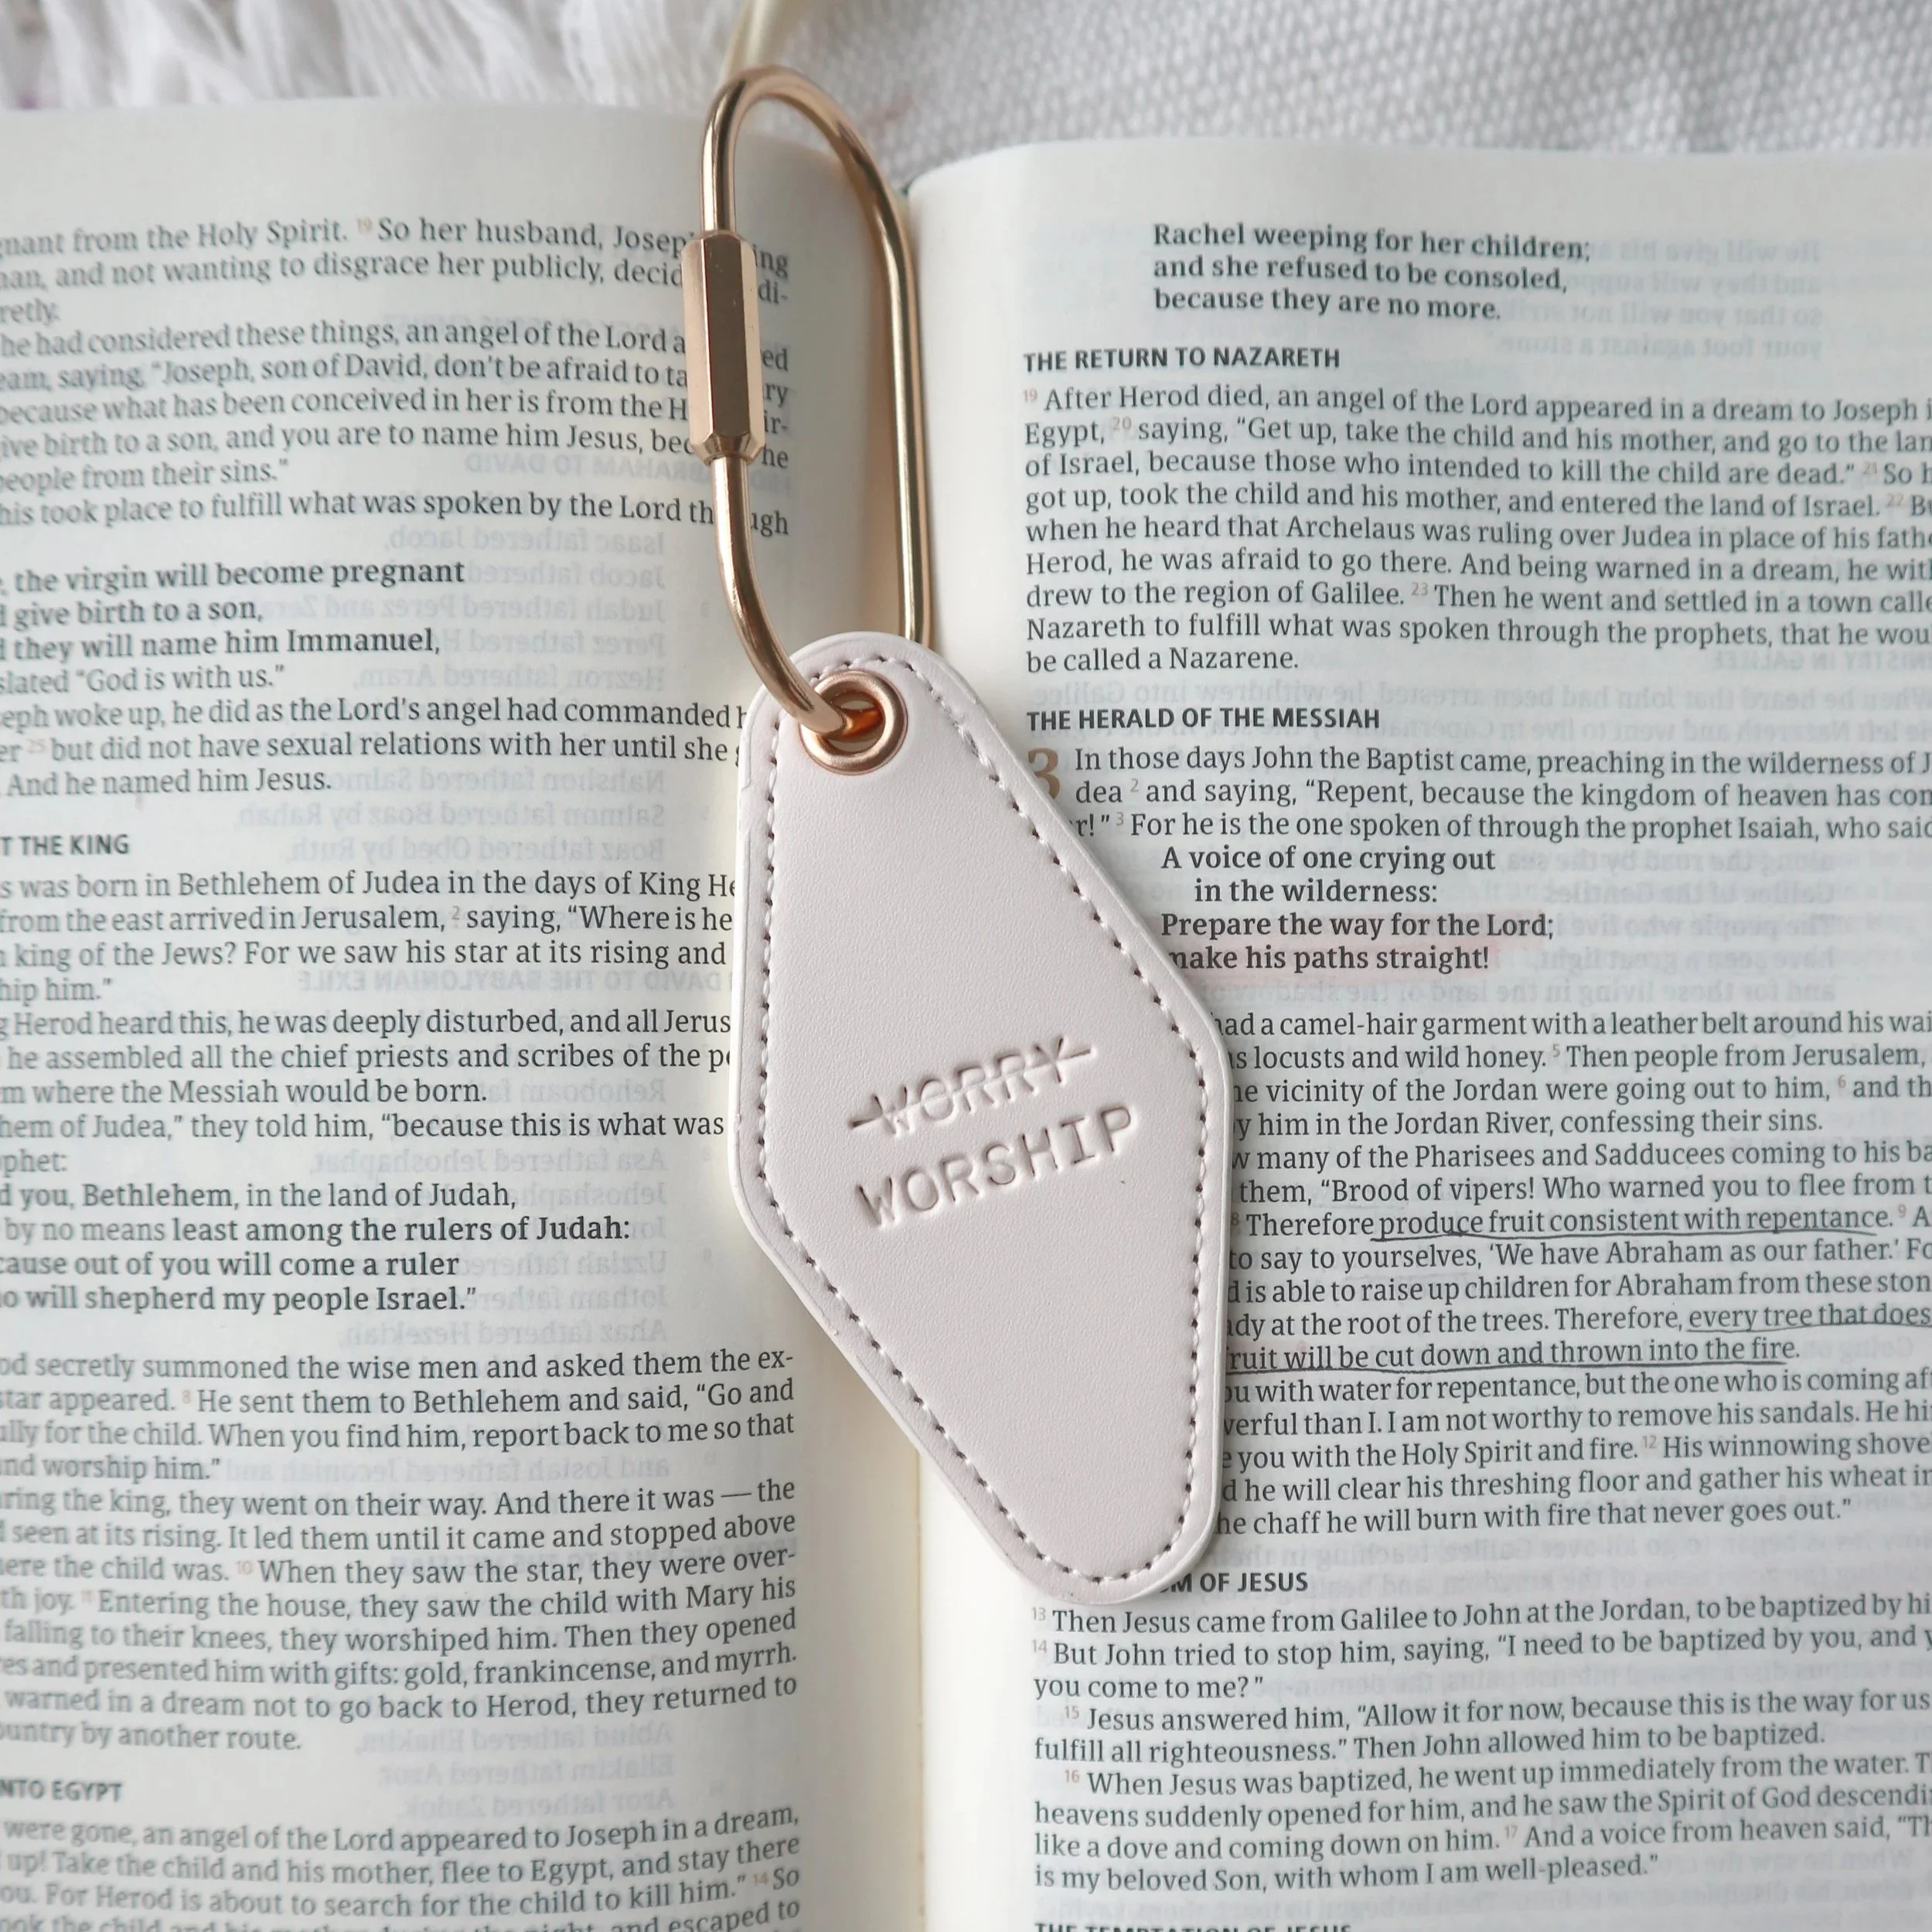 nant from the Holy Spirit. 19 So her husband, Joseph ing
an, and not wanting to disgrace her publicly, decid di-
retly.
he had considered these things, an angel of the Lord a ed
eam, saying, “Joseph, son of David, don’t be afraid to ta ry
because what has been conceived in her is from the H ir-
ive birth to a son, and you are to name him Jesus, bec he
people from their sins.”
his took place to fulfill what was spoken by the Lord th ugh
, the virgin will become pregnant
d give birth to a son,
d they will name him Immanuel,
slated “God is with us.”
eph woke up, he did as the Lord’s angel had commanded h
er 25 but did not have sexual relations with her until she g
. And he named him Jesus.
T THE KING
s was born in Bethlehem of Judea in the days of King He
from the east arrived in Jerusalem, 2 saying, “Where is he
n king of the Jews? For we saw his star at its rising and
hip him.”
g Herod heard this, he was deeply disturbed, and all Jerus
he assembled all the chief priests and scribes of the pe
m where the Messiah would be born.
hem of Judea,” they told him, “because this is what was
phet:
d you, Bethlehem, in the land of Judah,
by no means least among the rulers of Judah:
cause out of you will come a ruler
o will shepherd my people Israel.”
od secretly summoned the wise men and asked them the ex-
star appeared. 8 He sent them to Bethlehem and said, “Go and
ully for the child. When you find him, report back to me so that
nd worship him.”
ring the king, they went on their way. And there it was — the
d seen at its rising. It led them until it came and stopped above
ere the child was. 10 When they saw the star, they were over-
th joy. 11 Entering the house, they saw the child with Mary his
falling to their knees, they worshiped him. Then they opened
res and presented him with gifts: gold, frankincense, and myrrh.
warned in a dream not to go back to Herod, they returned to
ountry by another route.
NTO EGYPT
were gone, an angel of the Lord appeared to Joseph in a dream,
up! Take the child and his mother, flee to Egypt, and stay there
ou. For Herod is about to search for the child to kill him.” 14 So
ook the child and escaped to
WORRY
WORSHIP
Rachel weeping for her children;
and she refused to be consoled,
because they are no more.
THE RETURN TO NAZARETH
19 After Herod died, an angel of the Lord appeared in a dream to Joseph i
Egypt, 20 saying, “Get up, take the child and his mother, and go to the lan
of Israel, because those who intended to kill the child are dead.” 21 So h
got up, took the child and his mother, and entered the land of Israel. 22 Bu
when he heard that Archelaus was ruling over Judea in place of his fathe
Herod, he was afraid to go there. And being warned in a dream, he with
drew to the region of Galilee. 23 Then he went and settled in a town calle
Nazareth to fulfill what was spoken through the prophets, that he wou
be called a Nazarene.
THE HERALD OF THE MESSIAH
3 In those days John the Baptist came, preaching in the wilderness of J
dea 2 and saying, “Repent, because the kingdom of heaven has com
r!” 3 For he is the one spoken of through the prophet Isaiah, who said
A voice of one crying out
in the wilderness:
Prepare the way for the Lord;
make his paths straight!
ad a camel-hair garment with a leather belt around his wai
s locusts and wild honey. 5 Then people from Jerusalem,
he vicinity of the Jordan were going out to him, 6 and th
y him in the Jordan River, confessing their sins.
w many of the Pharisees and Sadducees coming to his ba
them, “Brood of vipers! Who warned you to flee from t
8 Therefore produce fruit consistent with repentance. 9 A
to say to yourselves, ‘We have Abraham as our father.’ Fo
d is able to raise up children for Abraham from these ston
dy at the root of the trees. Therefore, every tree that does
ruit will be cut down and thrown into the fire.
ou with water for repentance, but the one who is coming aft
verful than I. I am not worthy to remove his sandals. He hi
e you with the Holy Spirit and fire. 12 His winnowing shove
d he will clear his threshing floor and gather his wheat in
he chaff he will burn with fire that never goes out.”
M OF JESUS
13 Then Jesus came from Galilee to John at the Jordan, to be baptized by hi
14 But John tried to stop him, saying, “I need to be baptized by you, and y
you come to me?”
15 Jesus answered him, “Allow it for now, because this is the way for us
fulfill all righteousness.” Then John allowed him to be baptized.
16 When Jesus was baptized, he went up immediately from the water. T
heavens suddenly opened for him, and he saw the Spirit of God descendi
like a dove and coming down on him. 17 And a voice from heaven said, “Th
is my beloved Son, with whom I am well-pleased.”
THE TEMPTATION OF JESUS